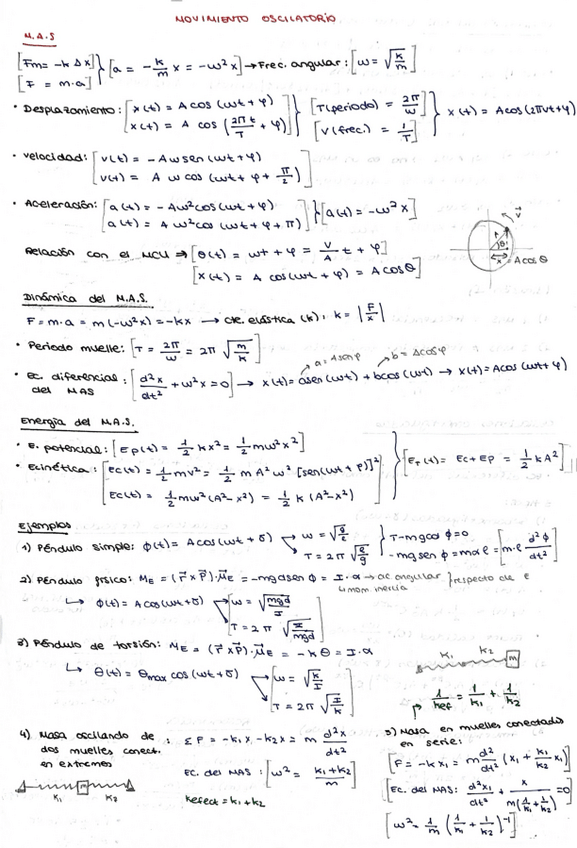 MOVIMIENTO OSCILATORIO
M.A.S
[Fm = -k Δx] [F = m·a] } [a = -k/m x = -ω²x] → Frec. angular: [ω = √(k/m)]
• Desplazamiento: [x(t) = A cos (ωt + φ)
x(t) = A cos (2πt/T + φ)] } [T(periodo) = 2π/ω] [ν(frec.) = 1/T] } x(t) = A cos(2πνt+φ)
• Velocidad: [v(t) = -Aω sen (ωt + φ)
v(t) = A ω cos (ωt + φ + π/2)]
• Aceleración: [a(t) = -Aω² cos (ωt + φ)
a(t) = A ω² cos (ωt + φ + π)] } [a(t) = -ω² x]
Relación con el MCU ⇒ [θ(t) = ωt + φ = v/A t + φ]
[x(t) = A cos(ωt + φ) = A cos θ]
v
θ
x = A cos θ
Dinámica del M.A.S.
F = m·a = m(-ω²x) = -kx → cte. elástica (k): k = |F/x|
• Periodo muelle: [T = 2π/ω = 2π √(m/k)]
a = A sen φ b = A cos φ
• Ec. diferencial del MAS : [d²x/dt² + ω²x = 0] → x(t) = a sen (ωt) + b cos (ωt) → x(t) = A cos (ωt + φ)
Energía del M.A.S.
• E. potencial: [Ep(t) = 1/2 kx² = 1/2 mω²x²]
• E cinética: [Ec(t) = 1/2 mv² = 1/2 m A² ω² [sen(ωt + φ)]²
Ec(t) = 1/2 mω² (A² - x²) = 1/2 k (A² - x²)] } [E_T(t) = Ec + Ep = 1/2 kA²]
Ejemplos
1) Péndulo simple: ϕ(t) = A cos (ωt + δ) ω = √(g/ℓ) T = 2π √(ℓ/g) } T - mg cos ϕ = 0
-mg sen ϕ = m a ℓ = [m·ℓ d²ϕ/dt²]
2) Péndulo físico: M_E = (r⃗ x P⃗)·μ⃗_E = -mgd sen ϕ = I·α → ac. angular } respecto de e
mom inercia
↳ ϕ(t) = A cos (ωt + δ) [ω = √(mgd/I)
T = 2π √(I/mgd)]
3) Péndulo de torsión: M_E = (r⃗ x P⃗)·μ⃗_E = -kθ = I·α
↳ θ(t) = θmax cos (ωt + δ) [ω = √(k/I)
T = 2π √(I/k)]
k₁ k₂ m
1/kef = 1/k₁ + 1/k₂
4) Masa oscilando de dos muelles conect. en extremos : ΣF = -k₁x - k₂x = m d²x/dt²
Ec. del MAS: [ω² = (k₁+k₂)/m]
kefect = k₁ + k₂
k₁ k₂
5) Masa en muelles conectados
en serie:
[F = -k x₁ = m d²/dt² (x₁ + k₁/k₂ x₁)]
[Ec. del MAS: d²x₁/dt² + x/(m(1/k₁ + 1/k₂)) = 0]
[ω² = 1/m (1/k₁ + 1/k₂)⁻¹]